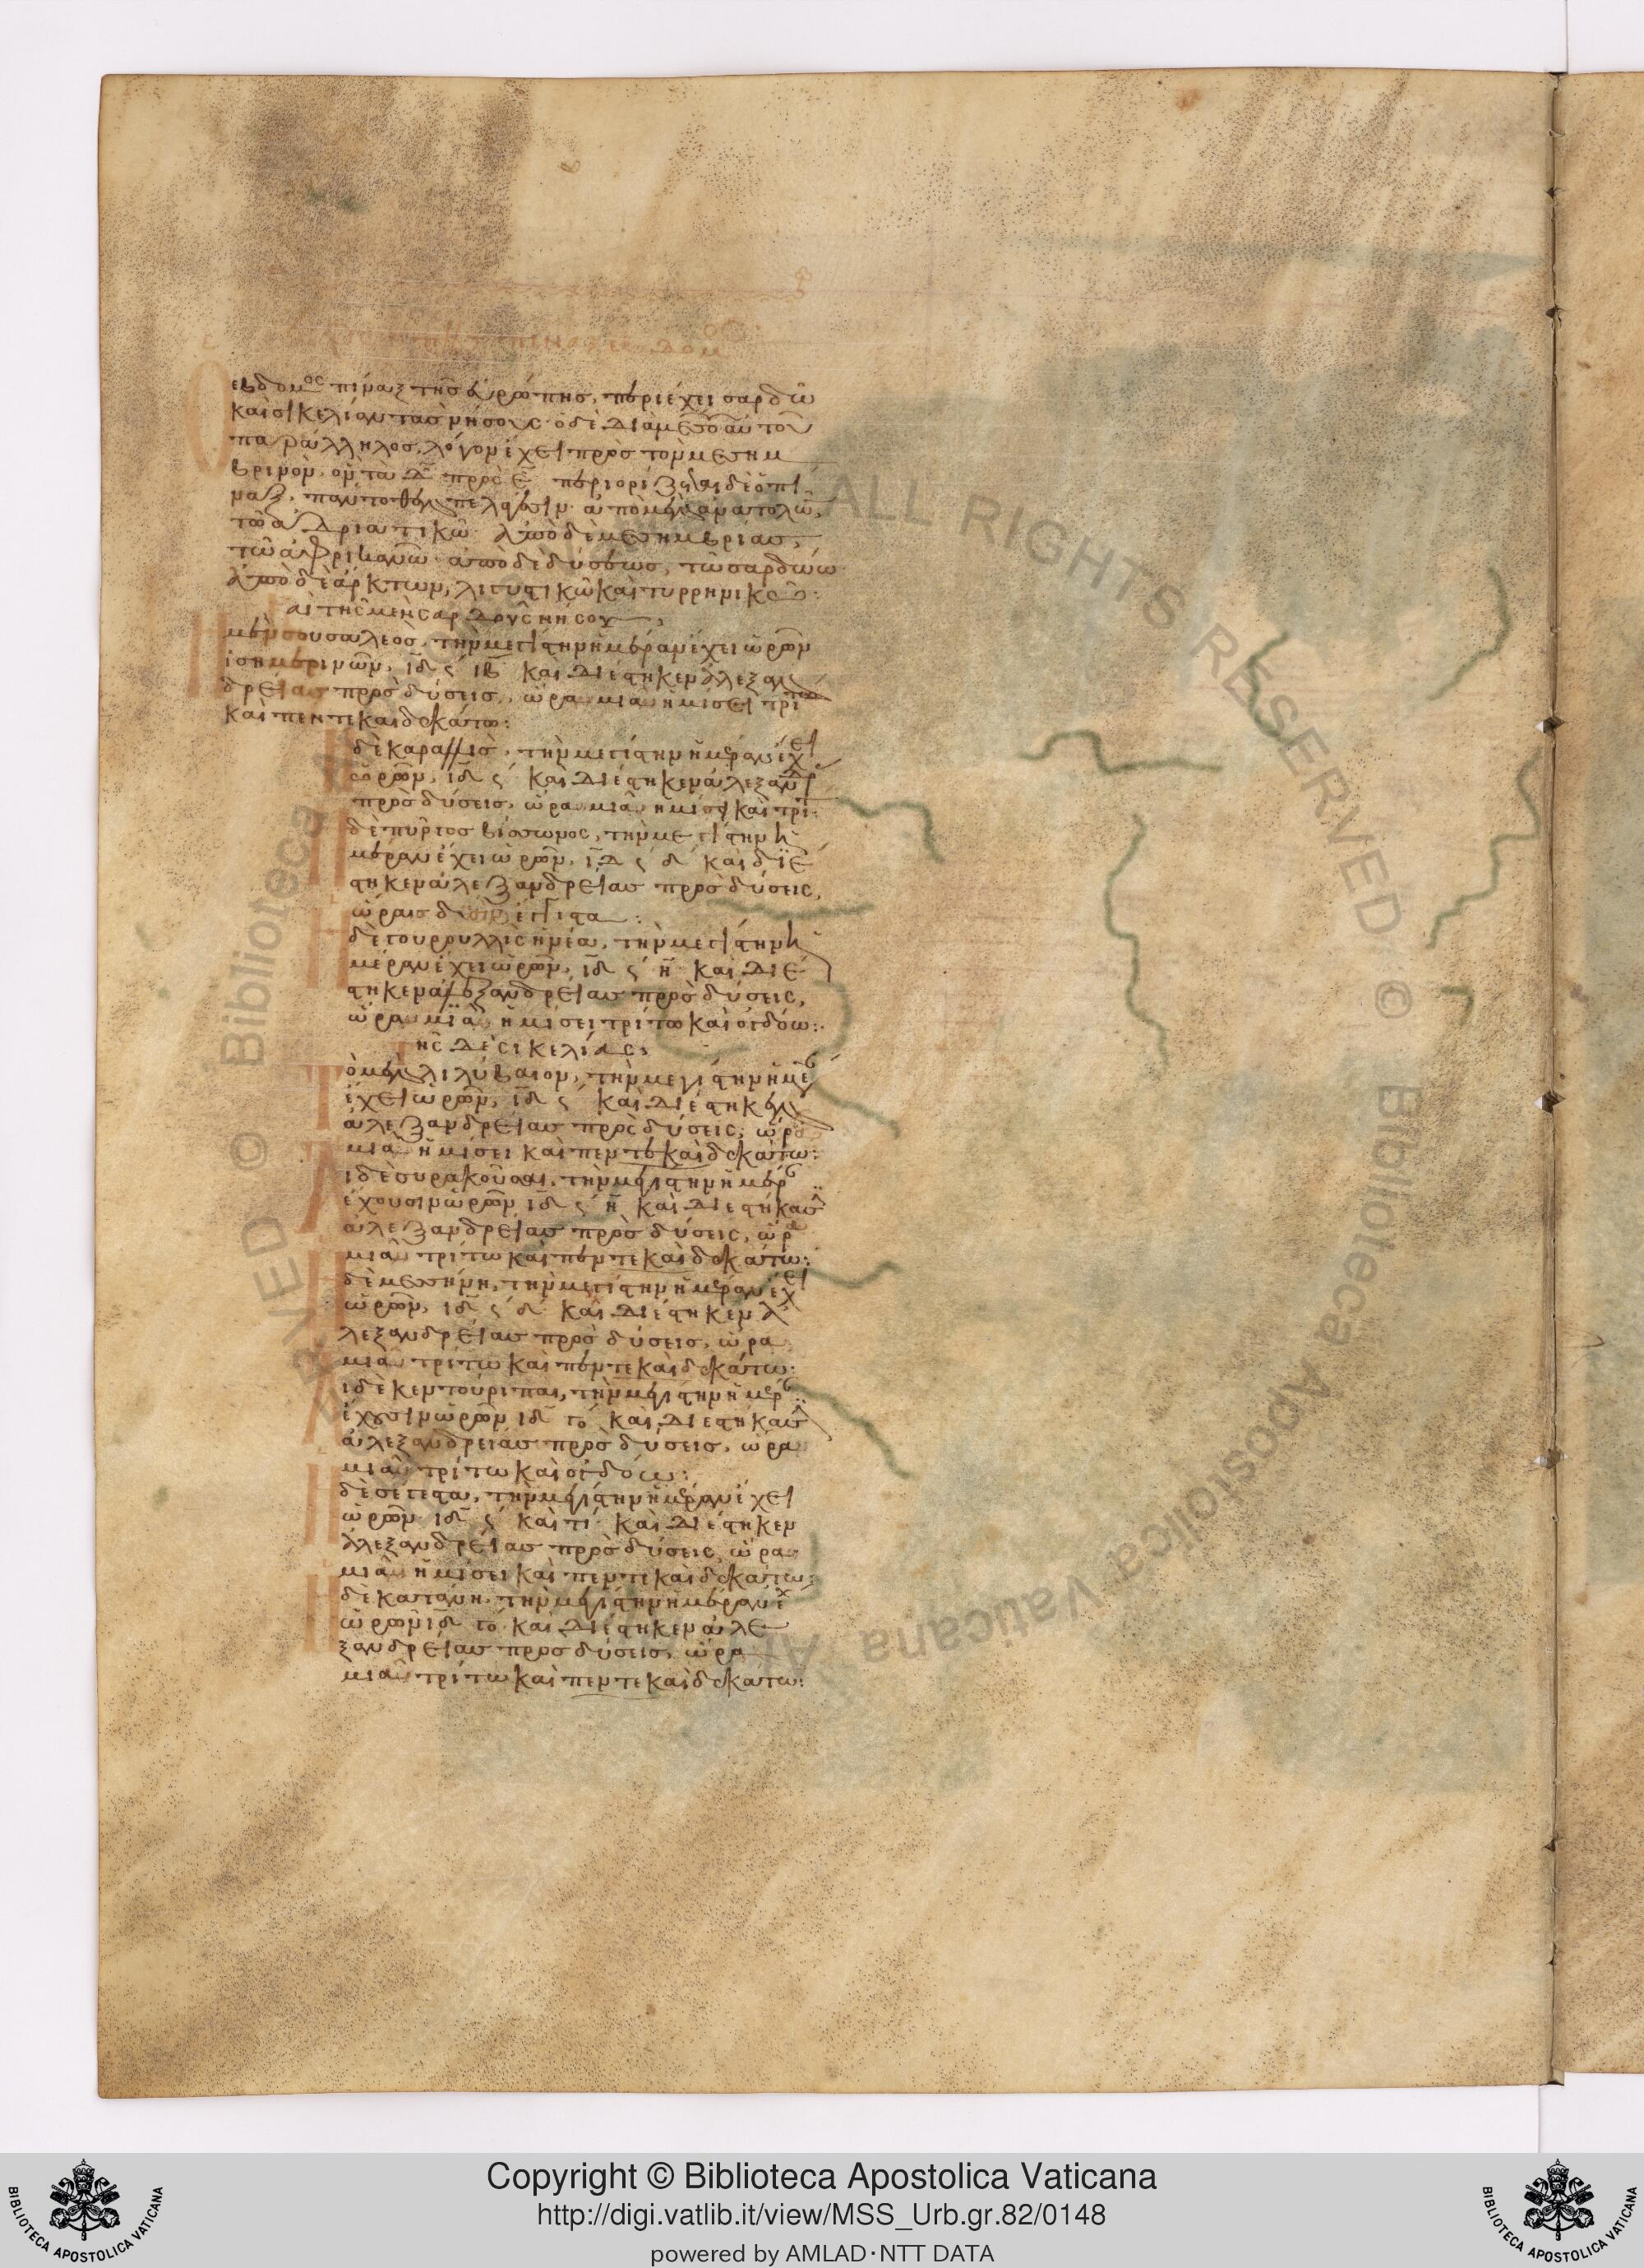 εβδομος πίναξ της ευρώπης, περιέχει σαρδώ
και σικελίαν τας νήσους· ο δὲ διὰ μέσου αὐτοῦ
παράλληλος, λόγον έχει πρὸς τον μεσημ
βρινὸν. ὃν τὰ δ̄ πρὸς ε̄ περιορίζεται δὲ ὁ πί
ναξ, πανταχόθεν πελάγεσιν. ἀπὸ μὲν ἀνατολῶν,
τῶ ἀδριατικῶ· ἀπὸ δὲ μεσημβρίας,
τῶ ἀφρικανῶ· ἀπὸ δὲ δύσεως, τῶ σαρδώω
ἀπὸ δὲ ἄρκτων, λιγυστικῶ καὶ τυρρηνικῶ:
τῆς μὲν σαρδοῦς νήσου
μὲν σουσαλεος, τὴν μεγίστην ἡμέραν ἔχει ὡρῶν
ἰσημερινῶν, ιδ ϛ ιβ καὶ διέστηκεν ἀλεξαν
δρείας πρὸς δύσεις, ὥραν μιᾶν ἡμίσει τρίτω
καὶ πεντικαιδεκάτω:
δὲ καραλλις, τὴν μεγίστην ἡμέραν ἔχει
ὡρῶν, ιδ ϛ καὶ διέστηκεν ἀλεξανδρ
πρὸς δύσεις, ὥραν μιᾶν ἡμίσει καὶ τρι
δὲ πύργος βίσσωνος, τὴν μεγίστην ἡ
μέραν ἔχει ὡρῶν, ιδ ϛ δ καὶ διέ
στηκεν ἀλεξανδρείας πρὸς δύσεις,
ὥραις δυσὶν ἔγγιστα:
δὲ τουρουλλὶς ἡ νέα, τὴν μεγίστην ἡ
μέραν ἔχει ὡρῶν, ιδ ϛ η καὶ διέ
στηκεν ἀλεξανδρείας πρὸς δύσεις,
ὥραν μιᾶν ἡμίσει τρίτω καὶ ογδόω:
Τῆς δὲ σικελίας,
Τὸ μὲν λιλύβαιον, τὴν μεγίστην ἡμέρ
ἔχει ὡρῶν, ιδ ϛ καὶ διέστηκεν
ἀλεξανδρείας πρὸς δύσεις, ὥρα
μιᾶν ἡμίσει καὶ πεντεκαιδεκάτω:
Αἱ δὲ συρακοῦσαι, τὴν μεγίστην ἡμέρ
ἔχουσιν ὡρῶν ιδ ϛ η καὶ διεστήκασ
ἀλεξανδρείας πρὸς δύσεις, ὥρα
μιᾶν τρίτω καὶ πεντεκαιδεκάτω:
Ἡ δὲ μεσσήνη, τὴν μεγίστην ἡμέραν ἔχει
ὡρῶν, ιδ ϛ δ καὶ διέστηκεν ἀ
λεξανδρείας πρὸς δύσεις, ὥρα
μιᾶν τρίτω καὶ πεντεκαιδεκάτω:
Αἱ δὲ κεντούριπαι, τὴν μεγίστην ἡμέρ
ἔχουσιν ὡρῶν ιδ γο καὶ διεστήκασ
ἀλεξανδρείας πρὸς δύσεις, ὥρα
μιᾶν τρίτω καὶ ογδόω:
Ἡ δὲ σέγεστα, τὴν μεγίστην ἡμέραν ἔχει
ὡρῶν ιδ ϛ καὶ γι καὶ διέστηκεν
ἀλεξανδρείας πρὸς δύσεις, ὥραν
μιᾶν ἡμίσει καὶ πεντεκαιδεκάτω:
Ἡ δὲ κατανη, τὴν μεγίστην ἡμέραν ἔχ
ὡρῶν ιδ γο καὶ διέστηκεν ἀλε
ξανδρείας πρὸς δύσεις, ὥρα
μιᾶν τρίτω καὶ πεντεκαιδεκάτω:
© Biblioteca Apostolica Vaticana ALL RIGHTS RESERVED © Biblioteca Apostolica Vaticana
BIBLIOTECA APOSTOLICA VATICANA
Copyright © Biblioteca Apostolica Vaticana
http://digi.vatlib.it/view/MSS_Urb.gr.82/0148
powered by AMLAD·NTT DATA
BIBLIOTECA APOSTOLICA VATICANA